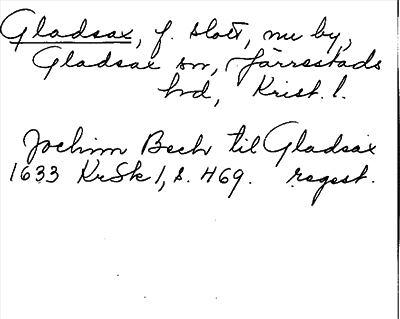 Gladsax, f. slott, nu by,
Gladsax sn, Järrestads
hd, Krist. l.
Jochim Bech til Gladsax
1633 KrSk 1, s. 469. regest.